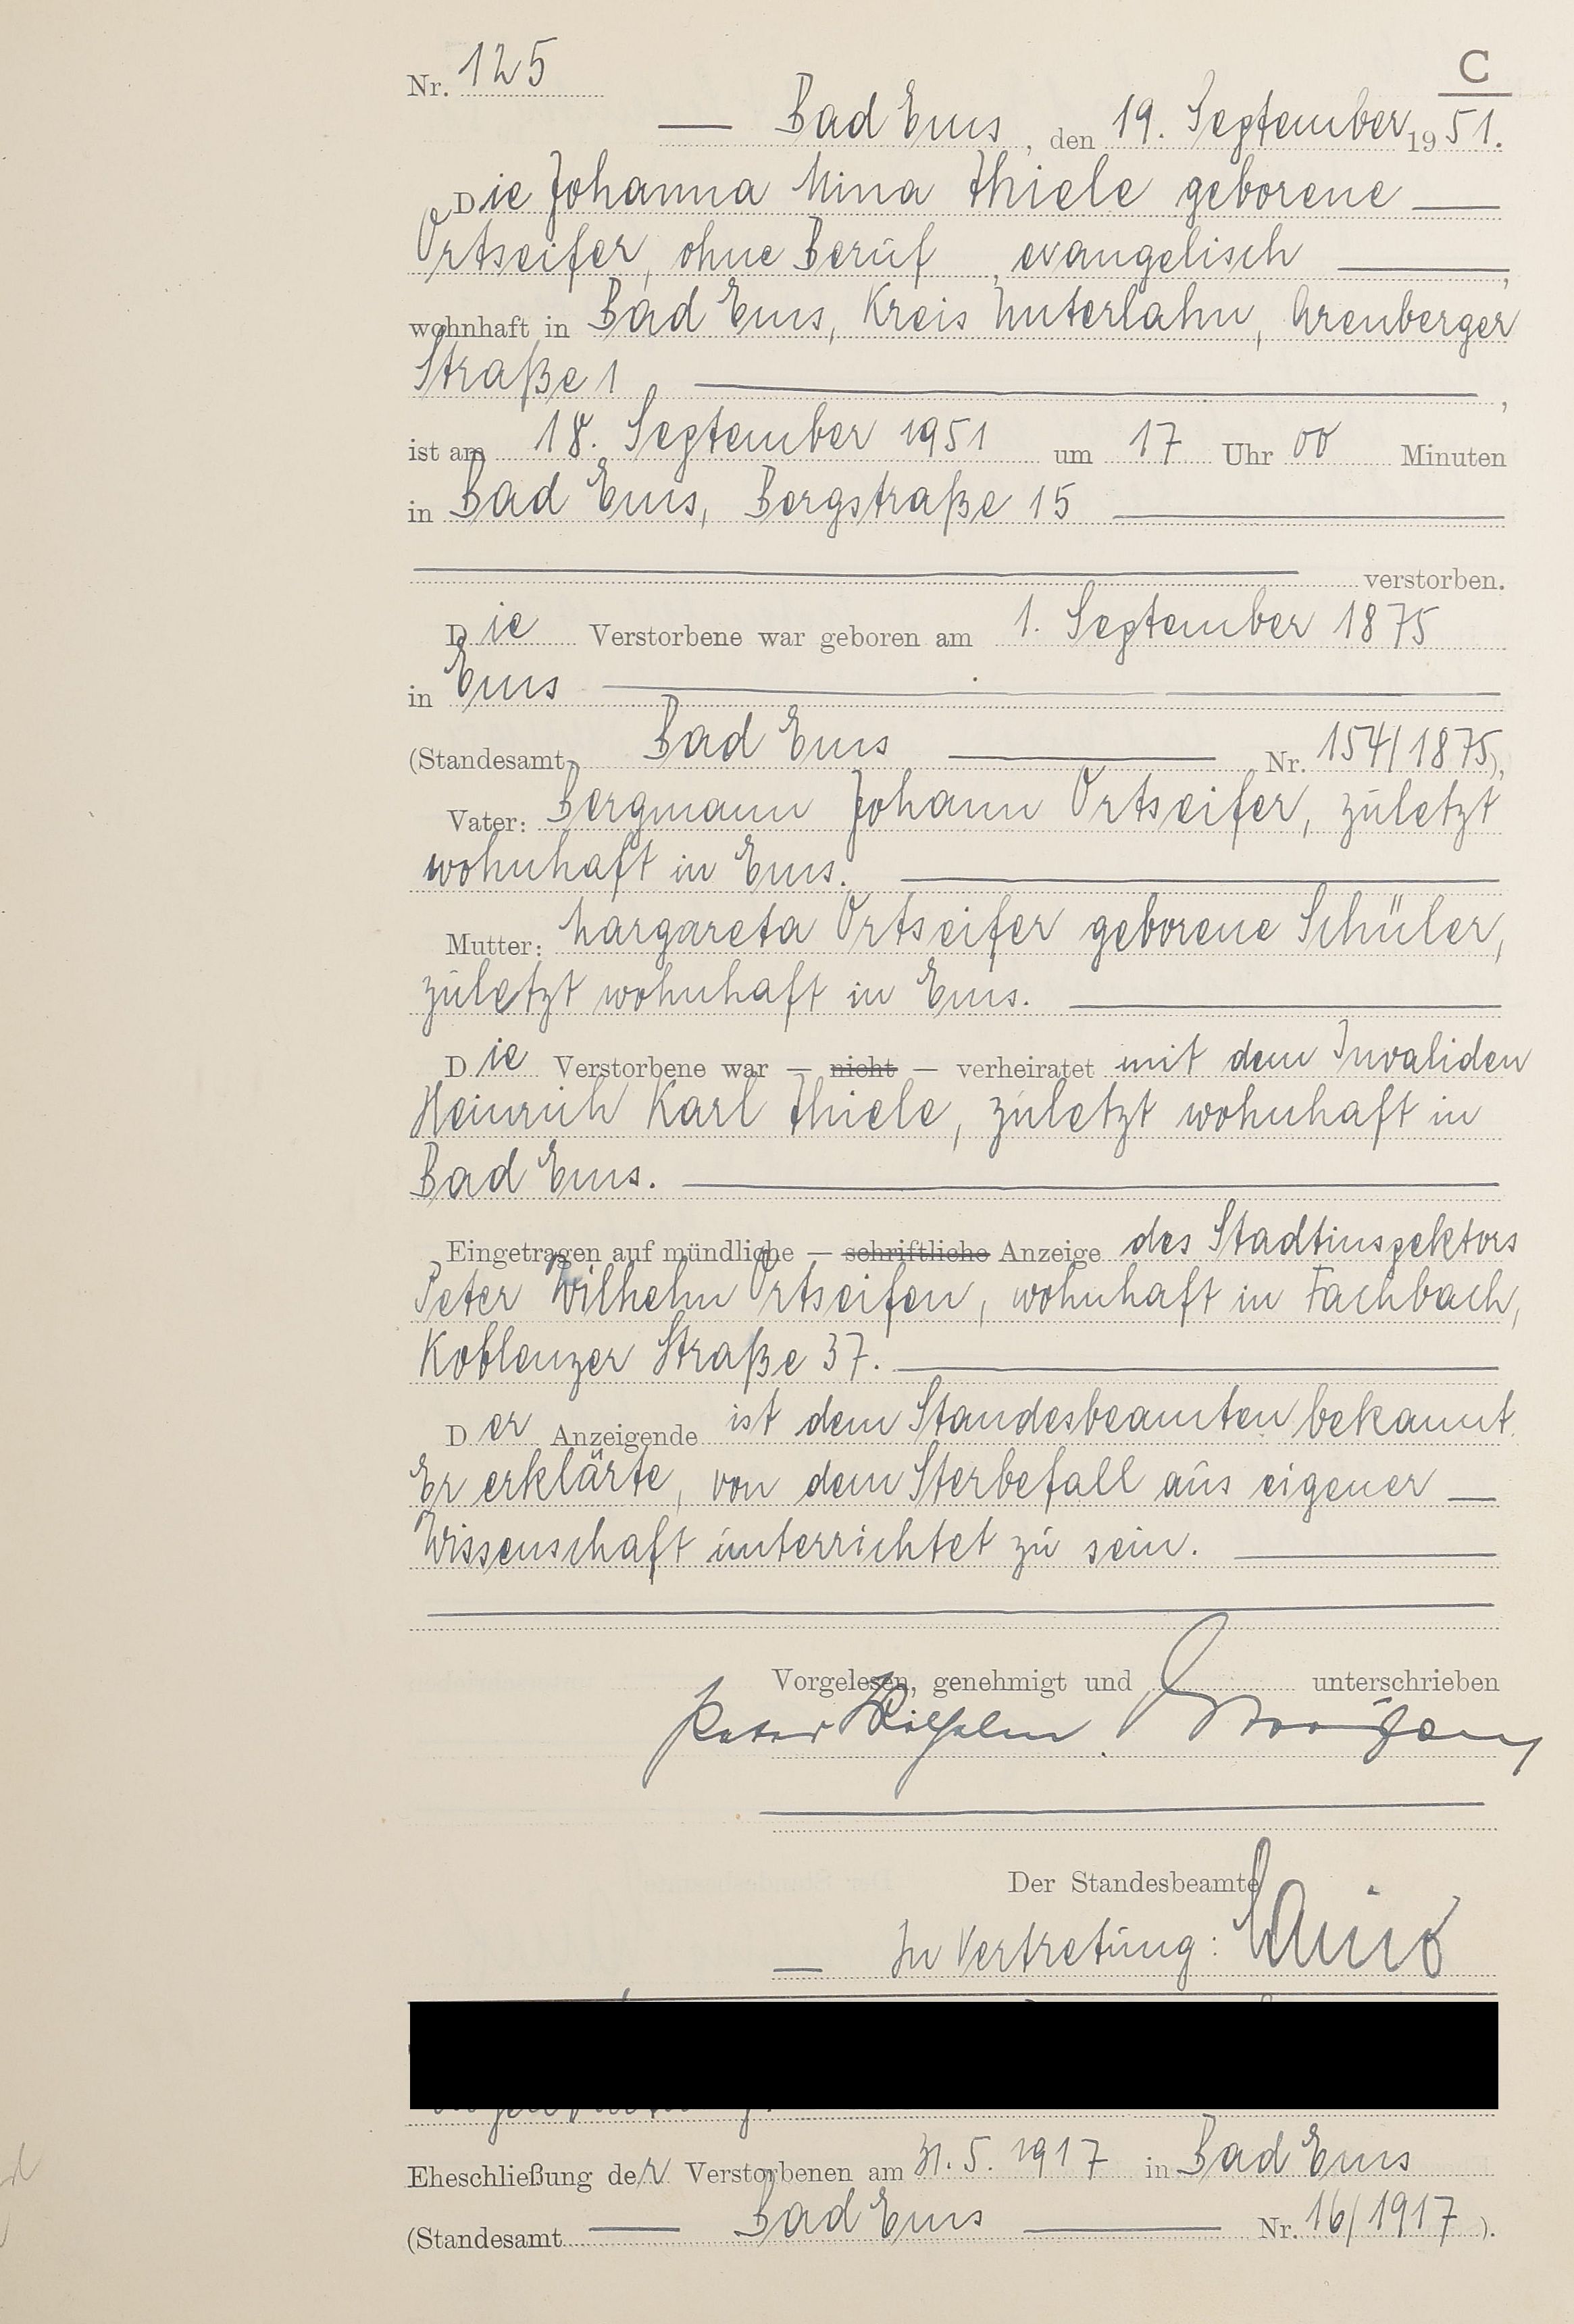 Nr. 125
C
— Bad Ems, den 19. September 1951.
Die Johanna Mina Thiele geborene —
Ortseifer, ohne Beruf, evangelisch —,
wohnhaft in Bad Ems, Kreis Unterlahn, Arenberger
Straße 1 —,
ist am 18. September 1951 um 17 Uhr 00 Minuten
in Bad Ems, Bergstraße 15 —
— verstorben.
Die Verstorbene war geboren am 1. September 1875
in Ems —
(Standesamt Bad Ems — Nr. 154/1875),
Vater: Bergmann Johann Ortseifer, zuletzt
wohnhaft in Ems. —
Mutter: Margareta Ortseifer geborene Schüler,
zuletzt wohnhaft in Ems. —
Die Verstorbene war — nicht — verheiratet mit dem Invaliden
Heinrich Karl Thiele, zuletzt wohnhaft in
Bad Ems. —
Eingetragen auf mündliche — schriftliche Anzeige des Stadtinspektors
Peter Wilhelm Ortseifen, wohnhaft in Fachbach,
Koblenzer Straße 37. —
Der Anzeigende ist dem Standesbeamten bekannt.
Er erklärte, von dem Sterbefall aus eigener —
Wissenschaft unterrichtet zu sein. —
Vorgelesen, genehmigt und unterschrieben
Peter Wilhelm Ortseifen
Der Standesbeamte
— In Vertretung:
Eheschließung der Verstorbenen am 31.5.1917 in Bad Ems
(Standesamt — Bad Ems — Nr. 16/1917).